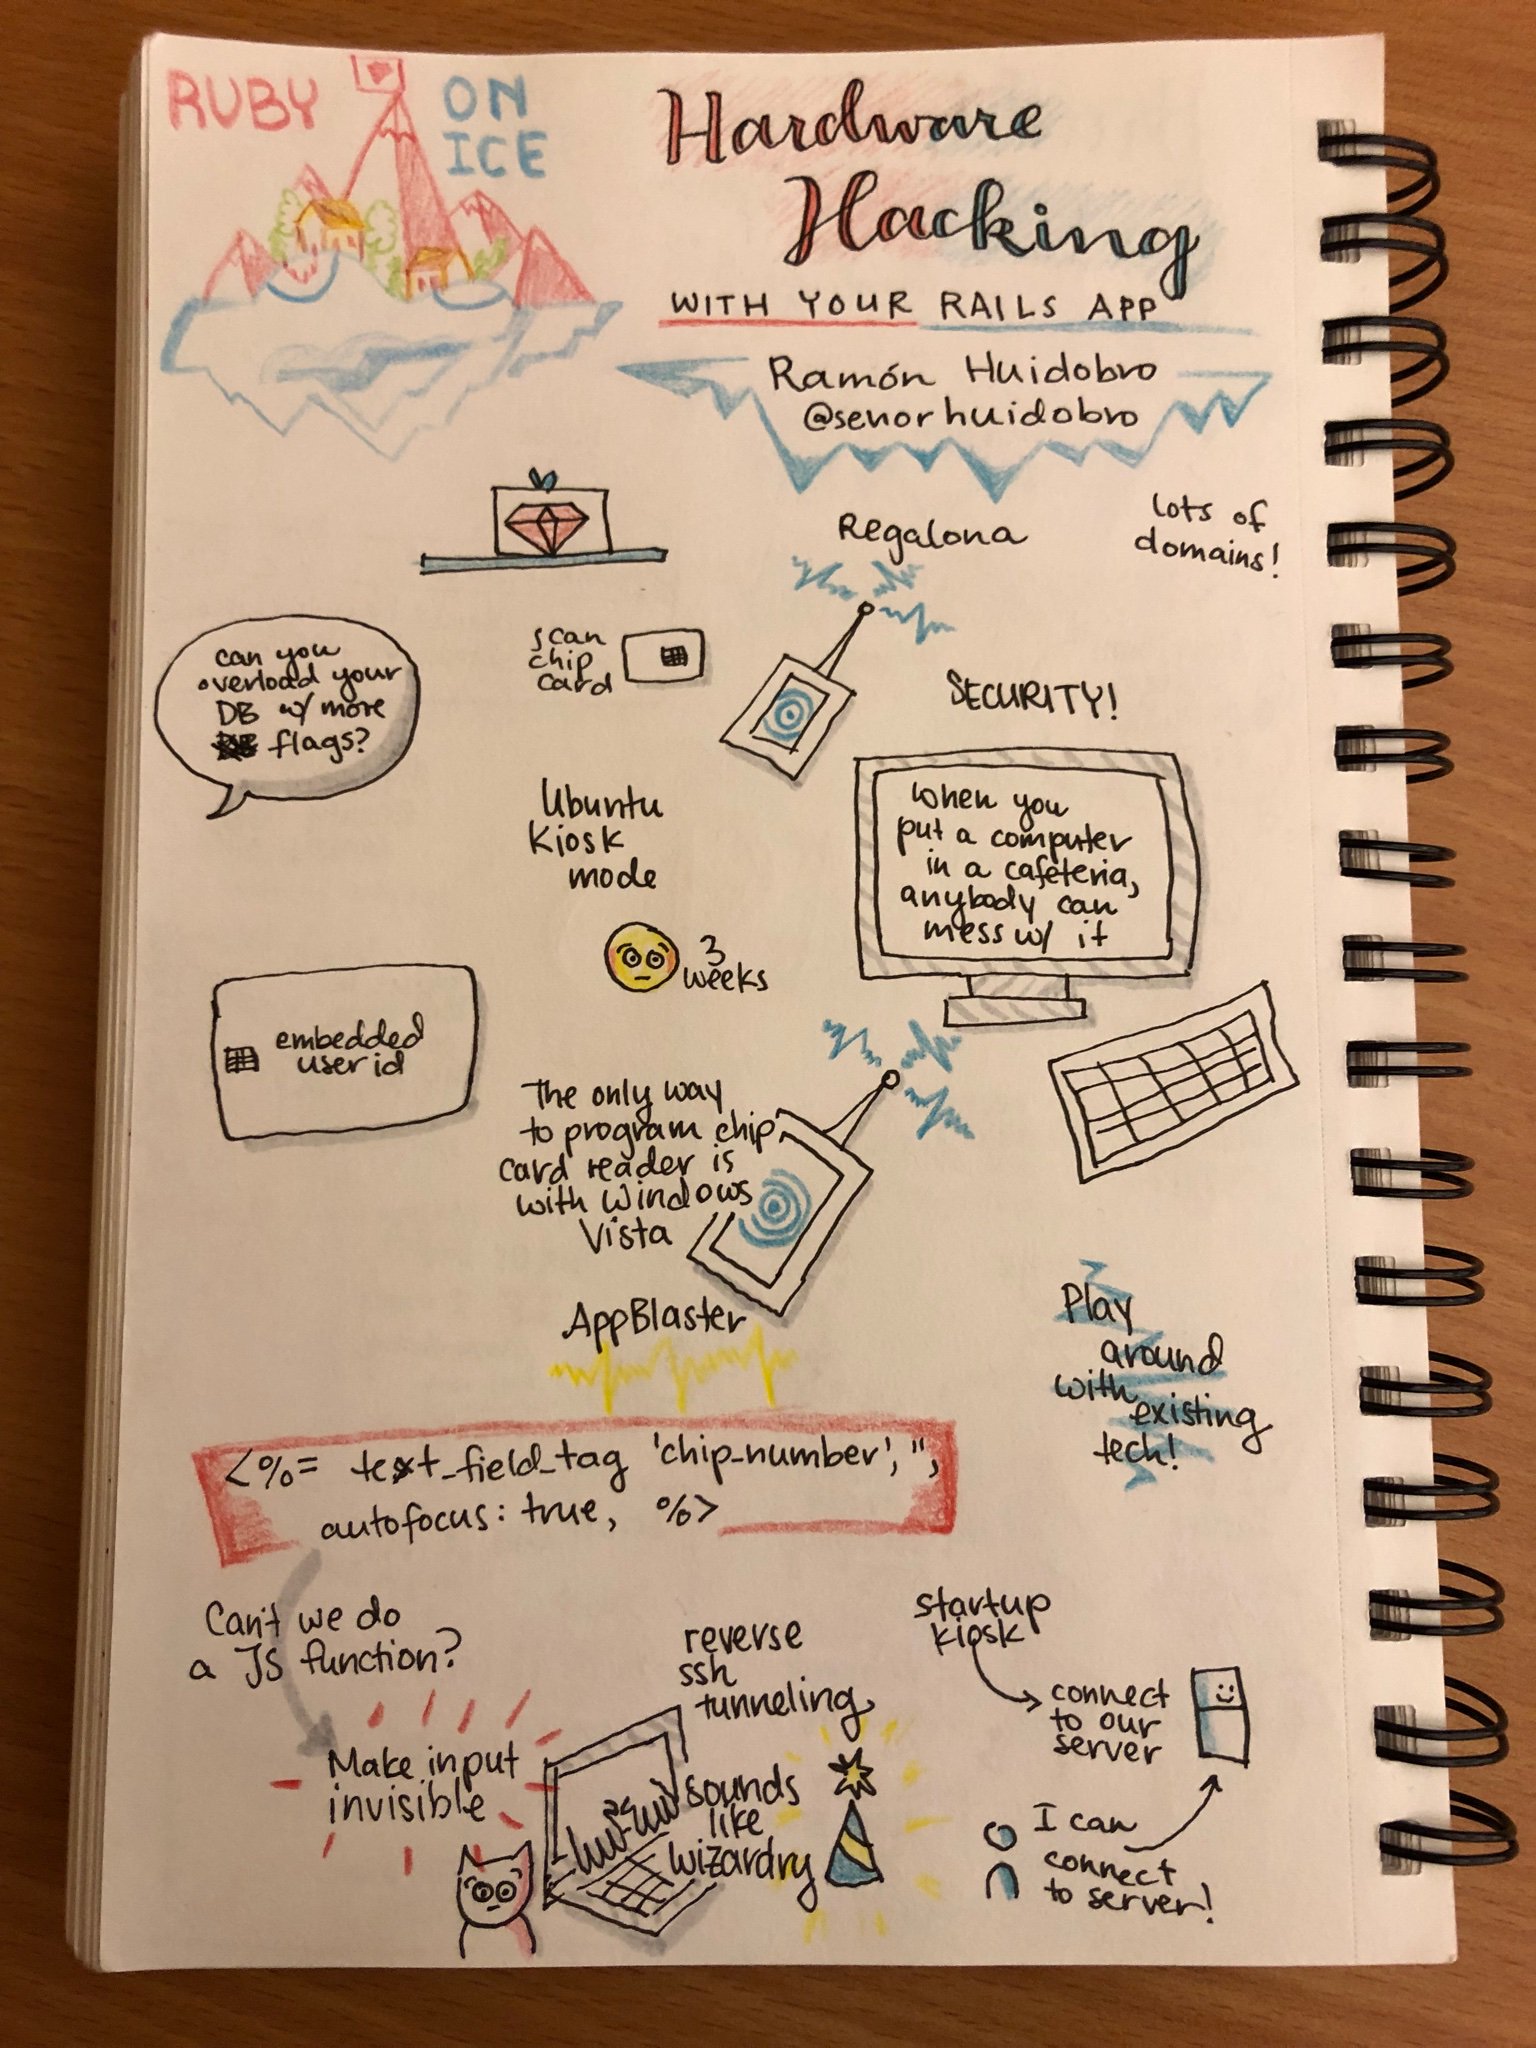 RUBY ON
ICE
Hardware
Hacking
WITH YOUR RAILS APP
Ramón Huidobro
@senorhuidobro
Regalona
lots of
domains!
can you
overload your
DB w/ more
flags?
scan
chip
card
SECURITY!
Ubuntu
Kiosk
mode
when you
put a computer
in a cafeteria,
anybody can
mess w/ it
3
weeks
embedded
user id
The only way
to program chip
card reader is
with Windows
Vista
AppBlaster
Play
around
with
existing
tech!
<%= text_field_tag 'chip_number', '',
autofocus: true, %>
Can't we do
a JS function?
Make input
invisible
reverse
ssh
tunneling
sounds
like
wizardry
startup
kiosk
connect
to our
server
I can
connect
to server!